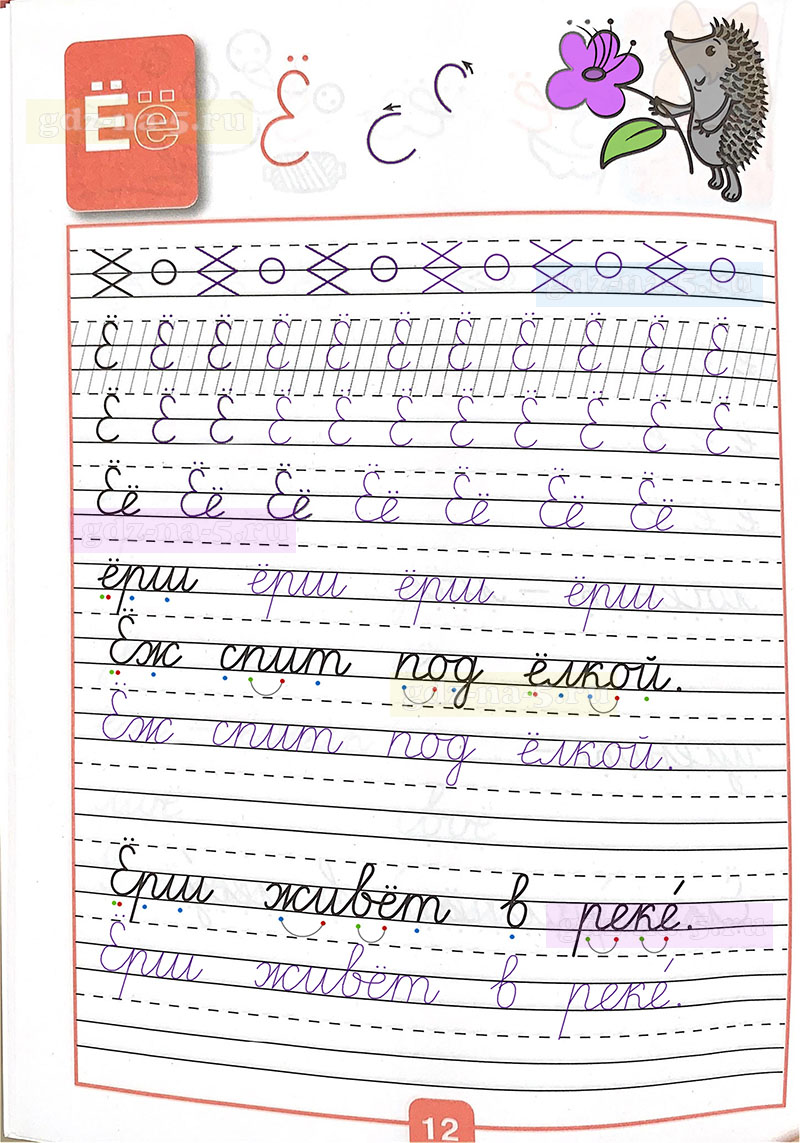 Ёё
gdz-na-5.ru
Ё
gdz-na-5.ru
Ё Ё Ё Ё Ё Ё Ё Ё Ё Ё Ё
Ё Ё Ё Ё Ё Ё Ё Ё Ё Ё Ё
Ёё Ёё Ёё Ёё Ёё Ёё Ёё
gdz-na-5.ru
ёрш ёрш ёрш ёрш
Ёж спит под ёлкой.
gdz-na-5.ru
Ёж спит под ёлкой.
Ёрш живёт в реке́.
gdz-na-5.ru
Ёрш живёт в реке́.
12